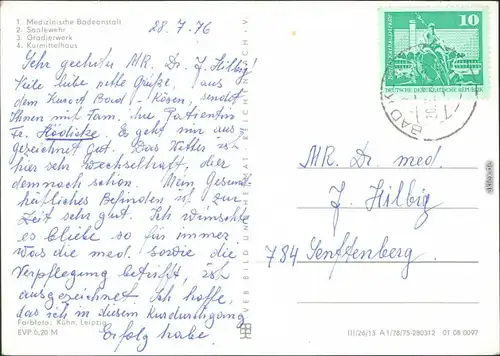 1. Medizinische Badeanstalt
2. Saalewehr
3. Gradierwerk
4. Kurmittelhaus
28.7.76
Sehr geehrter MR. Dr. J. Hilbig!
Viele liebe nette Grüße, aus
dem Kurort Bad-Kösen, sendet
Ihnen mit Fam. Ihre Patientin
Fr. Hädicke. Es geht mir aus
gezeichnet gut. Das Wetter ist
hier sehr Wechselhaft, aber
demnach schön. Mein Gesund-
heitliches Befinden ist zur
Zeit sehr gut. Ich wünschte
es bliebe so für immer
was die med. sowie die
Verpflegung betrifft, ist
ausgezeichnet. Ich hoffe,
das ich in diesem Kurdurchgang
Erfolg habe.
Farbfoto: Kühn, Leipzig
EVP 0,20 M
VEB BILD UND HEIMAT REICHENBACH I. V.
10
DEUTSCHE DEMOKRATISCHE REPUBLIK
BAD
MR. Dr. med.
J. Hilbig
784 Senftenberg
III/26/13 A 1/78/75-280312 01 08 0097